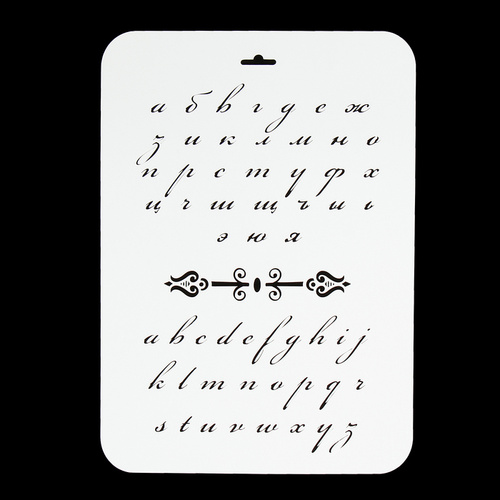 а б в г д е ж
з и к л м н о
п р с т у ф х
ц ч ш щ ъ ы ь
э ю я
a b c d e f g h i j
k l m n o p q r
s t u v w x y z